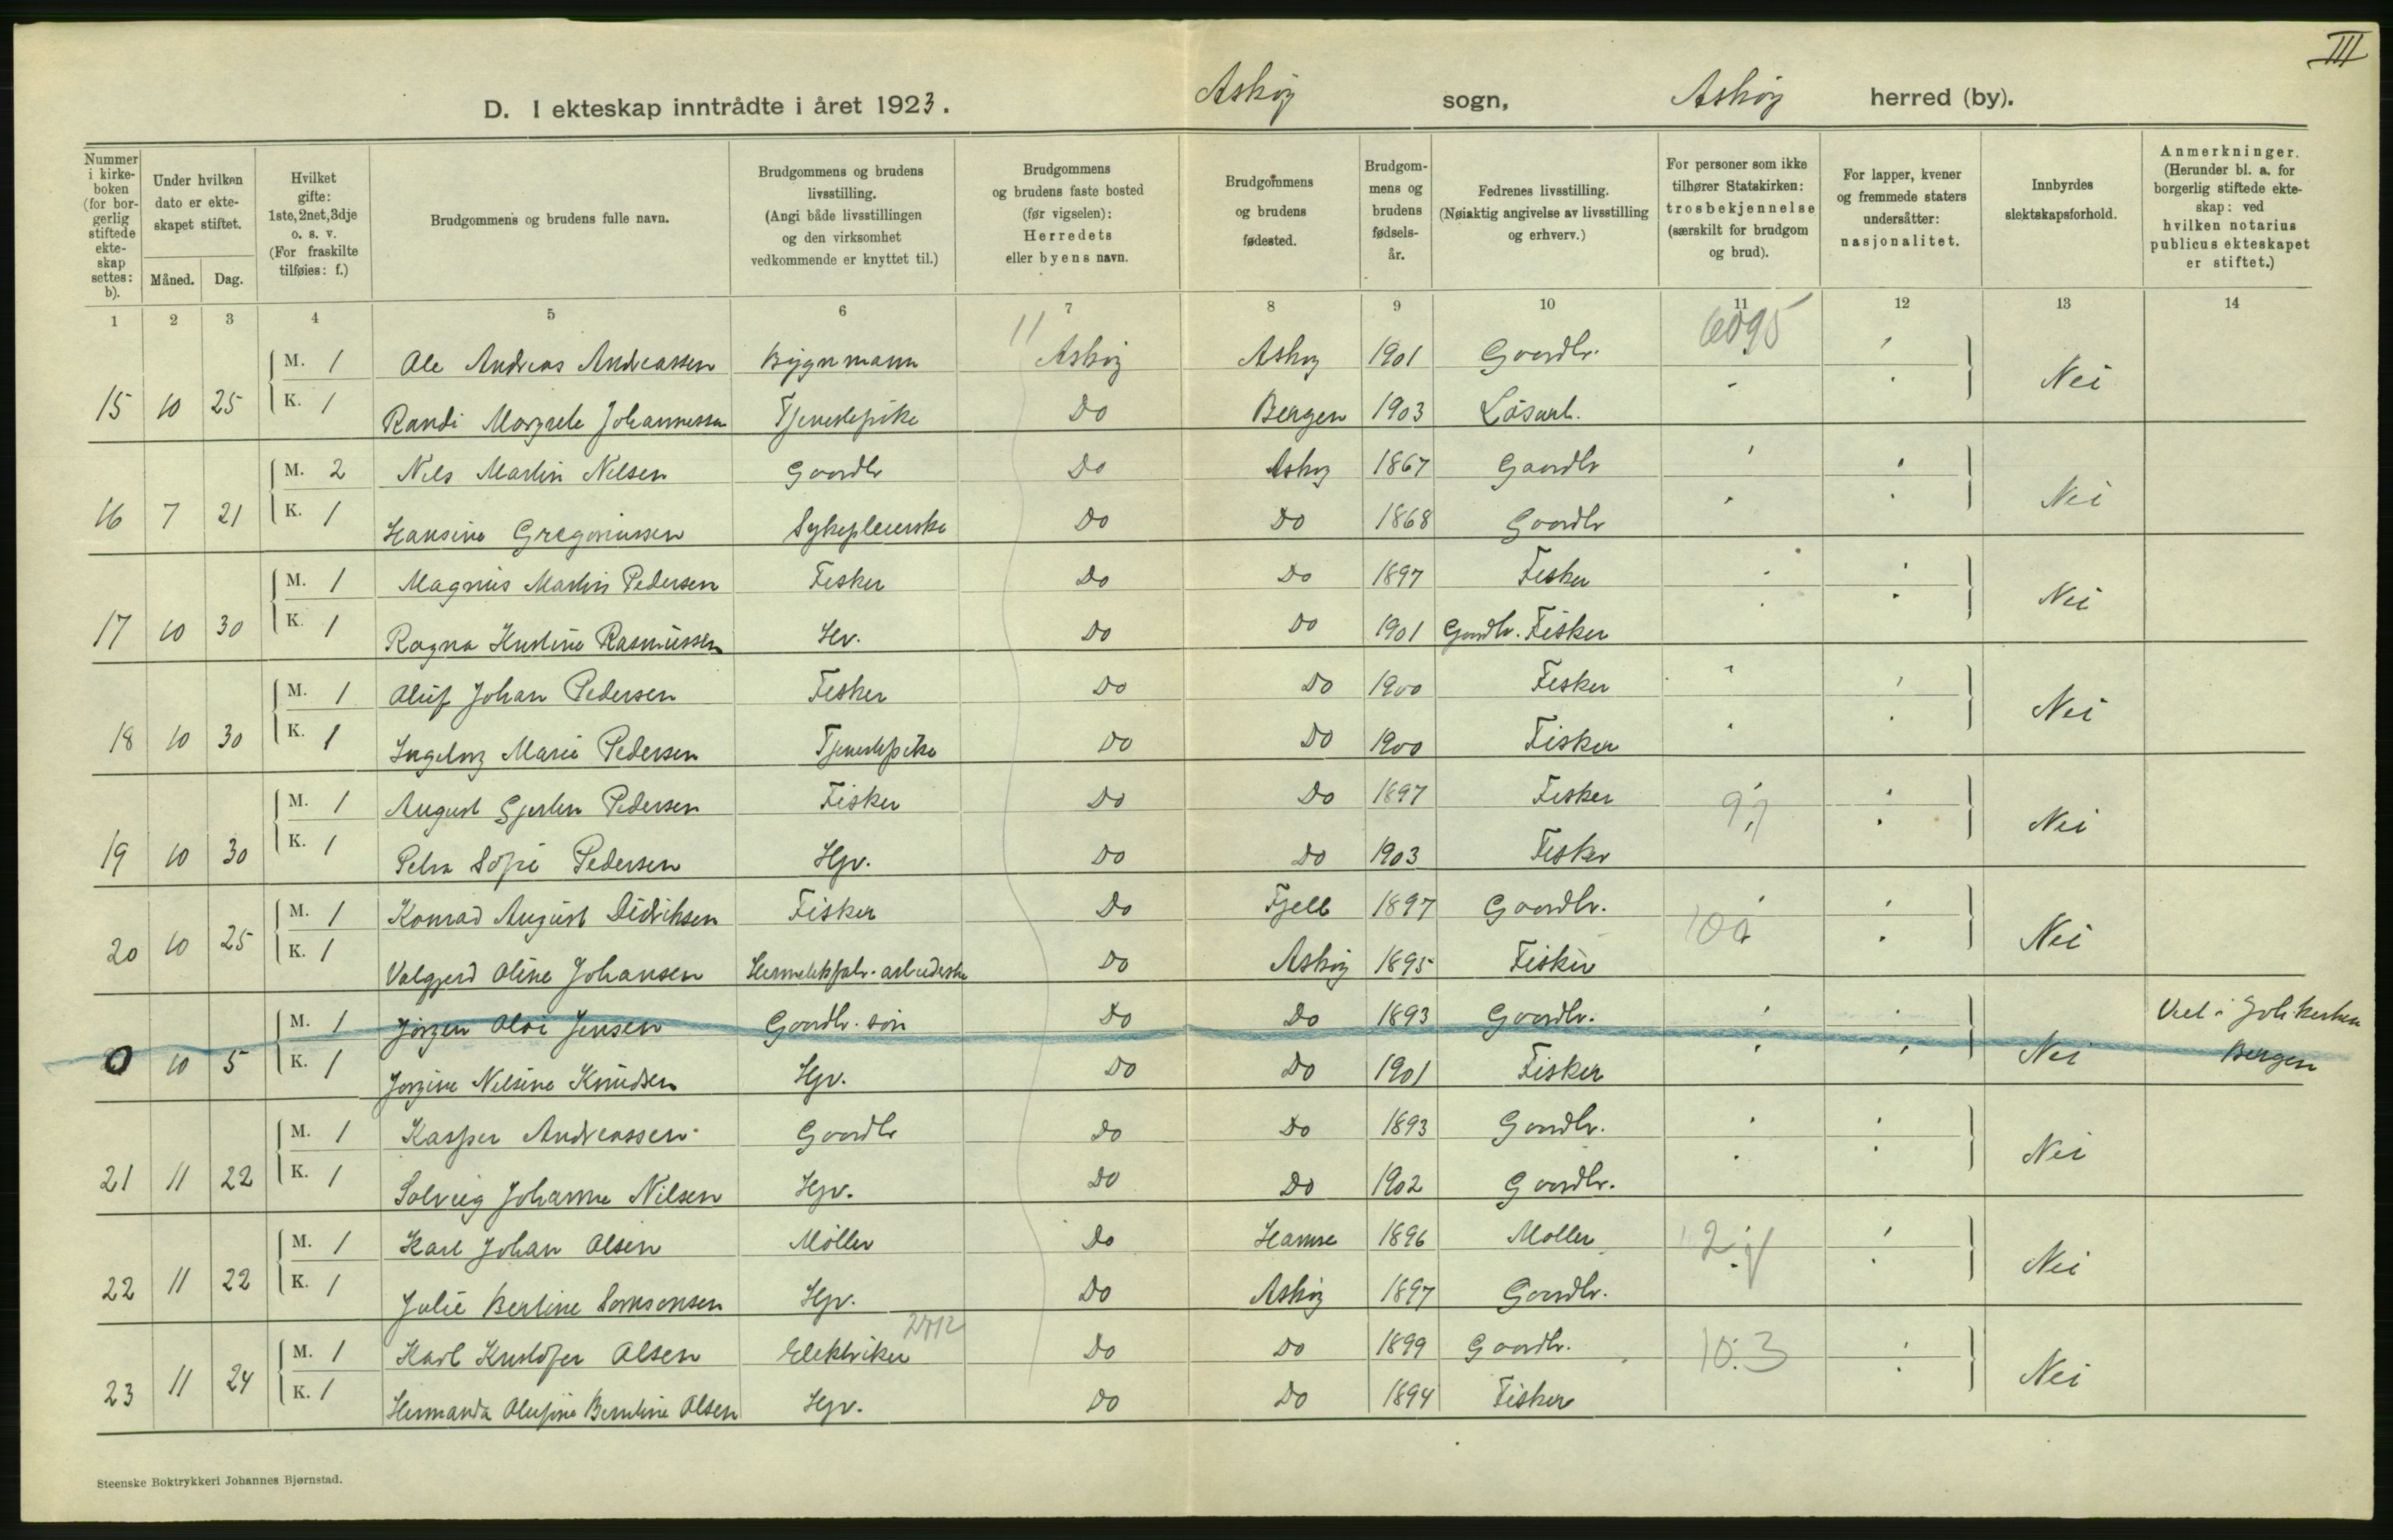 III
D. I ekteskap inntrådte i året 1923. Askøy sogn, Askøy herred (by).
Nummer i kirkeboken (for borgerlig stiftede ekteskap settes: b).
Under hvilken dato er ekteskapet stiftet.
Måned. Dag.
Hvilket gifte: 1ste, 2net, 3dje o. s. v. (For fraskilte tilføies: f.)
Brudgommens og brudens fulle navn.
Brudgommens og brudens livsstilling. (Angi både livsstillingen og den virksomhet vedkommende er knyttet til.)
Brudgommens og brudens faste bosted (før vigselen): Herredets eller byens navn.
Brudgommens og brudens fødested.
Brudgommens og brudens fødselsår.
Fedrenes livsstilling. (Nøiaktig angivelse av livsstilling og erhverv.)
For personer som ikke tilhører Statskirken: trosbekjennelse (særskilt for brudgom og brud).
For lapper, kvener og fremmede staters undersåtter: nasjonalitet.
Innbyrdes slektskapsforhold.
Anmerkninger. (Herunder bl. a. for borgerlig stiftede ekteskap: ved hvilken notarius publicus ekteskapet er stiftet.)
1 2 3 4 5 6 7 8 9 10 11 12 13 14
M. 1 Ole Andreas Andreassen Bygnmann Askøy Askøy 1901 Gaardbr. 6095
15 10 25 K. 1 Randi Margrete Johannessen Tjenestepike Do Bergen 1903 Løsarb. Nei
M. 2 Nils Martin Nilsen Gaardbr Do Askøy 1867 Gaardbr
16 7 21 K. 1 Hansine Gregoriussen Sykepleierske Do Do 1868 Gaardbr Nei
M. 1 Magnus Martin Pedersen Fisker Do Do 1897 Fisker
17 10 30 K. 1 Ragna Kristine Rasmussen Hv. Do Do 1901 Gaardbr. Fisker Nei
M. 1 Oluf Johan Pedersen Fisker Do Do 1900 Fisker
18 10 30 K. 1 Ingeborg Marie Pedersen Tjenestepike Do Do 1900 Fisker Nei
M. 1 August Gjertin Pedersen Fisker Do Do 1897 Fisker
19 10 30 K. 1 Petra Sofie Pedersen Hjv. Do Do 1903 Fisker Nei
M. 1 Konrad August Didriksen Fisker Do Fjell 1897 Gaardbr.
20 10 25 K. 1 Valgjerd Oline Johansen Hermetikfabr. arbeiderske Do Askøy 1895 Fisker Nei
M. 1 Jørgen Olai Jensen Gaardbr. søn Do Do 1893 Gaardbr. Viet i Joh. kirken
0 10 5 K. 1 Jorgine Nilsine Knudsen Hjv. Do Do 1901 Fisker Nei Bergen
M. 1 Kasper Andreassen Gaardbr Do Do 1893 Gaardbr.
21 11 22 K. 1 Solveig Johanne Nilsen Hjv. Do Do 1902 Gaardbr. Nei
M. 1 Karl Johan Olsen Møller Do Hamre 1896 Møller
22 11 22 K. 1 Julie Bertine Samsonsen Hjv. Do Askøy 1897 Gaardbr. Nei
M. 1 Karl Kristofer Olsen Elektriker Do Do 1899 Gaardbr. 103
23 11 24 K. 1 Hermanda Olufine Berntine Olsen Hjv. Do Do 1894 Fisker Nei
Steenske Boktrykkeri Johannes Bjørnstad.